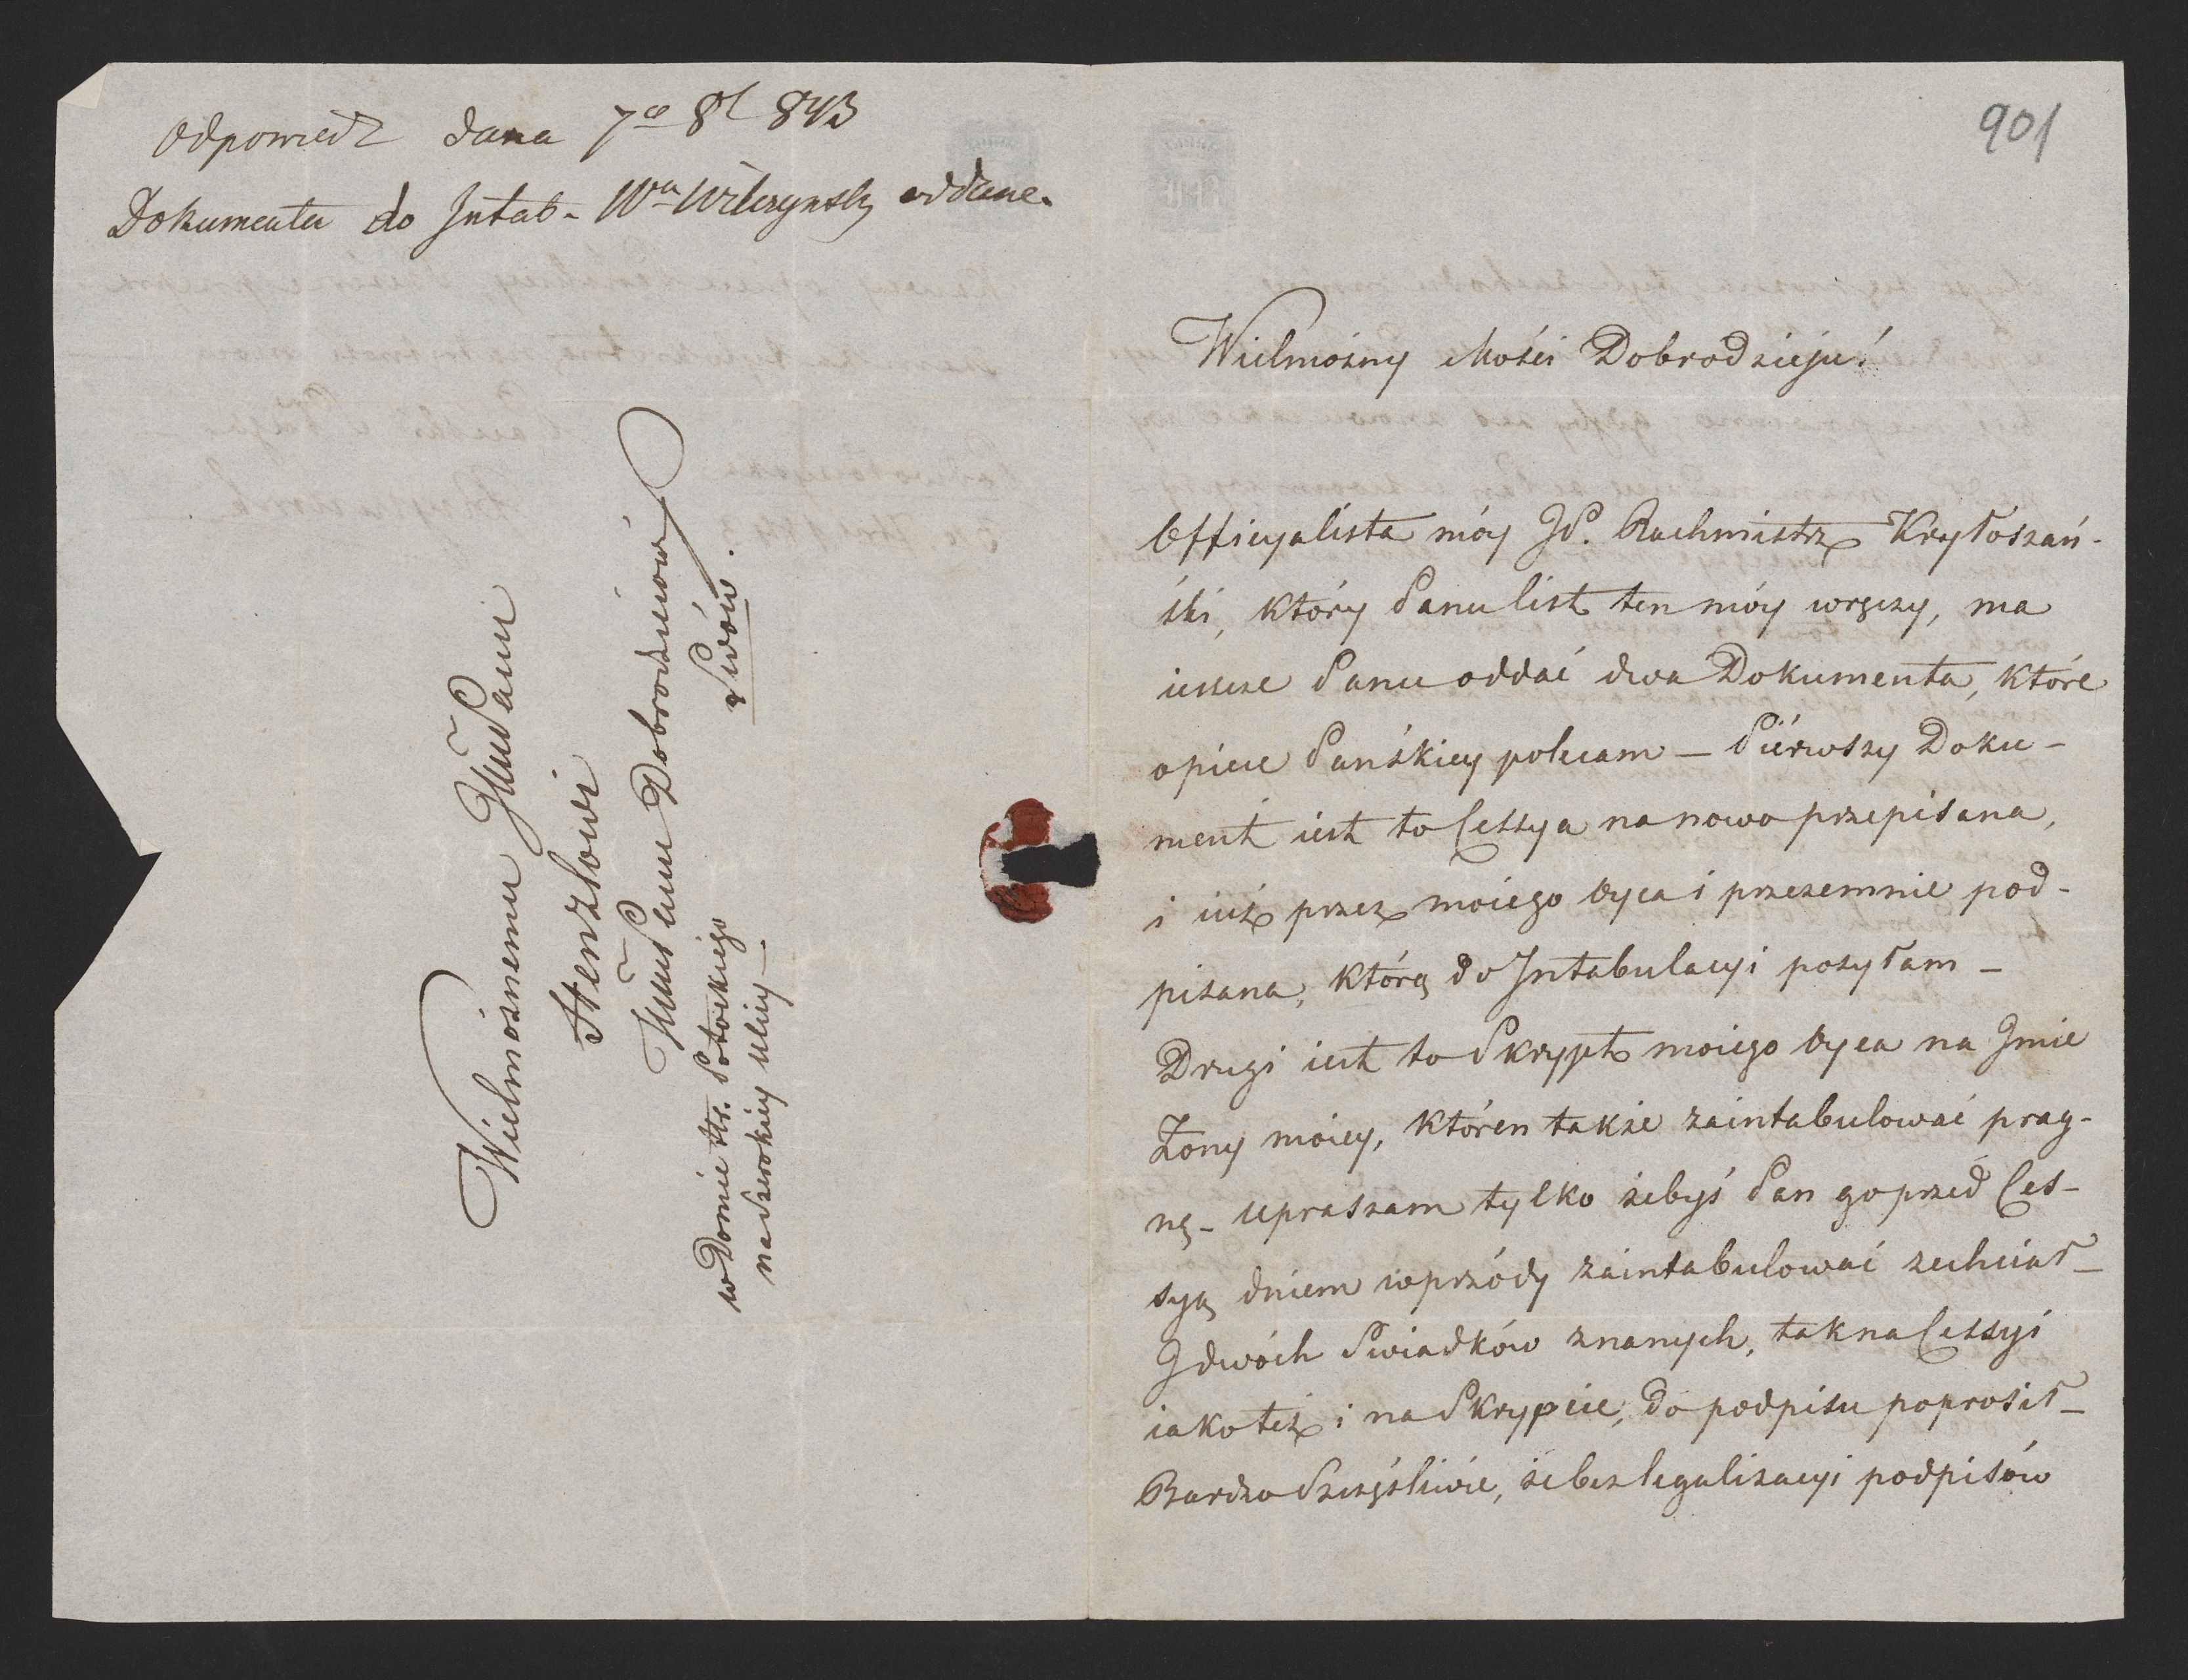 Odpowiedz dana 7o 8l 843
Dokumenta do Intab. oddane.
Wielmożnemu JmPanu
Stenzlowi
JmuPanu Dobrodziejowi
w Domie Hr. Potockiego
na Szerokiey Ulicy—
Lwów.
901
Wielmożny Mości Dobrodzieju!
Officyalista móy JP. Rachmistrz Kryłoszań-
ski, który Panu list ten móy wręczy, ma
ieszcze Panu oddać dwa Dokumenta, które
opiece Pańskiey polecam — Piérwszy Doku-
ment iest to Cessya na nowo przepisana,
i iuż przez moiego oyca i przezemnie pod-
pisana, którą do Intabulacyi posyłam —
Drugi iest to Skrypt moiego oyca na Imie
Żony moiey, któren także zaintabulować prag-
nę — upraszam tylko żebyś Pan go przed Ces-
syą dniem wprzódy zaintabulować zechciał —
I dwóch Swiadków znanych, tak na Cessyi
iako też i na Skrypcie, do podpisu poprosił —
Bardzo Szczęśliwie, że bez legalizacyi podpisów